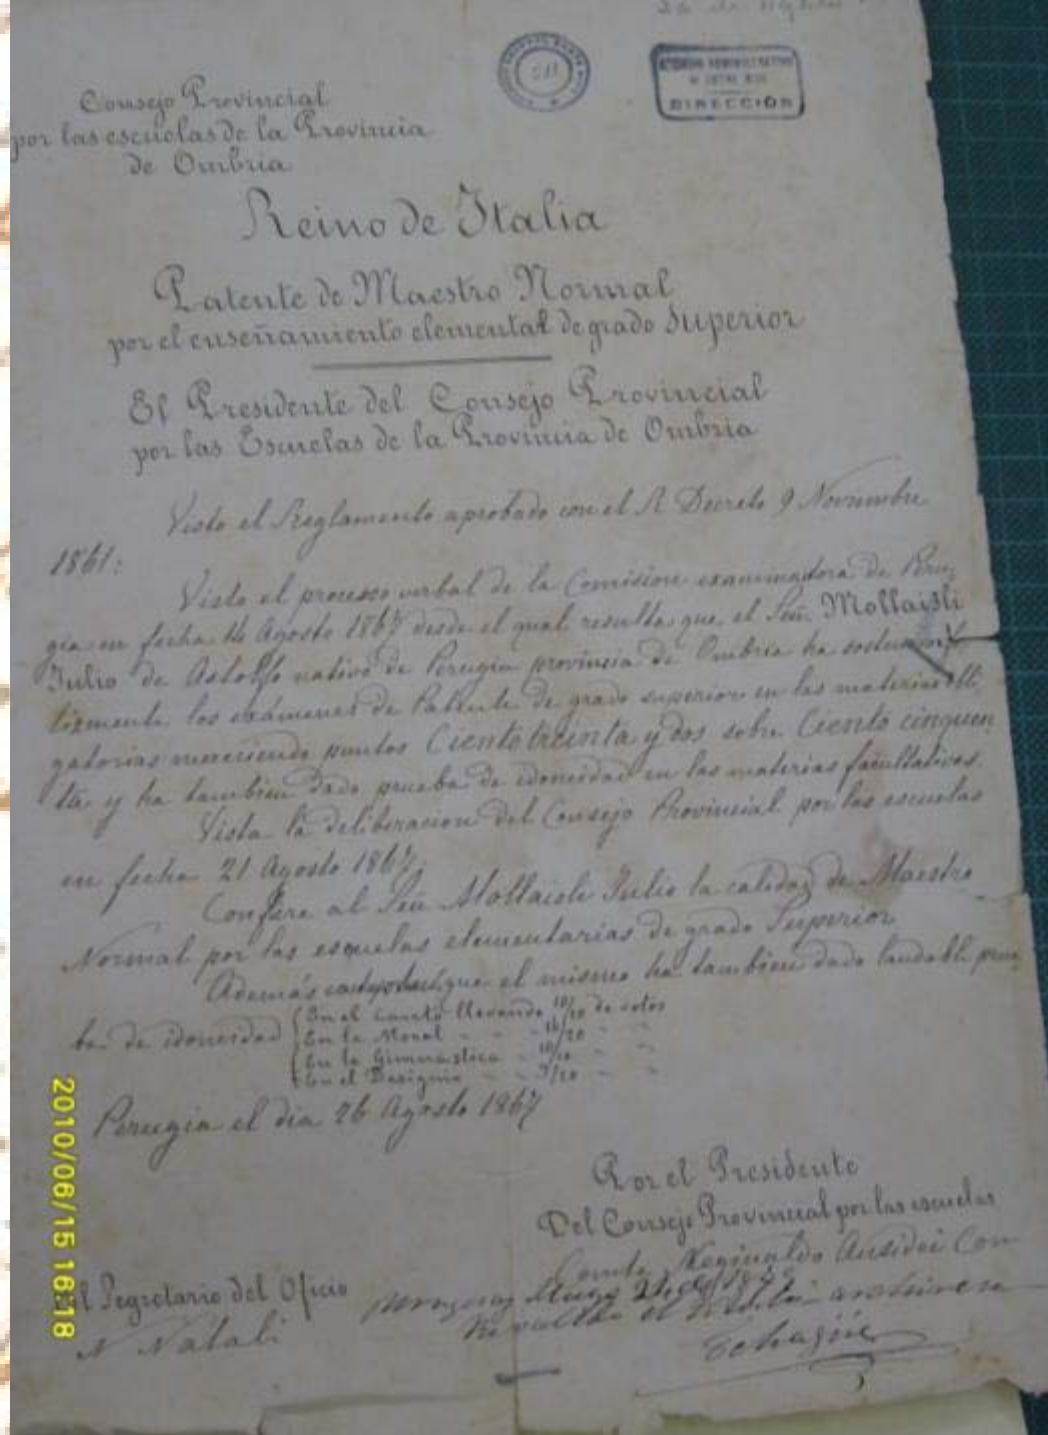 Consejo Provincial
por las escuelas de la Provincia
de Ombria
DIRECCIÓN
Reino de Italia
Patente de Maestro Normal
por el enseñamiento elemental de grado Superior
El Presidente del Consejo Provincial
por las Escuelas de la Provincia de Ombria
Visto el Reglamento aprobado con el R Decreto 9 Novembre
1861:
Visto el processo verbal de la Comision examinadora de Peru
gia en fecha 16 Agosto 1867 desde el qual resulta que el Señ. Mollaisli
Julio de Astolfo nativo de Perugia provincia de Ombria ha
los exámenes de Patente de grado superior en las materias obli
gatorias mereciendo puntos Ciento treinta y dos sobre Ciento cinquen
ta y ha tambien dado prueba de idoneidad en las materias facultativas.
Vista la deliberacion del Consejo Provincial por las escuelas
en fecha 21 Agosto 1867.
Confiere al Señ Mollaisli Julio la calidad de Maestro
Normal por las esquelas elementarias de grado Superior
Además que el mismo ha tambien dado laudabl prue
ba de idoneidad
En el Canto llevando 10/10 de votos
En la Moral - - 16/20 " "
En la Gimnastica - 10/10 " "
En el Designio - - 9/10 " "
Perugia el dia 26 Agosto 1867
Por el Presidente
Del Consejo Provincial por las escuelas
Conde Reginaldo Ansidei
El Segretario del Oficio
N Natali
Echagüe
2010/06/15 16:18